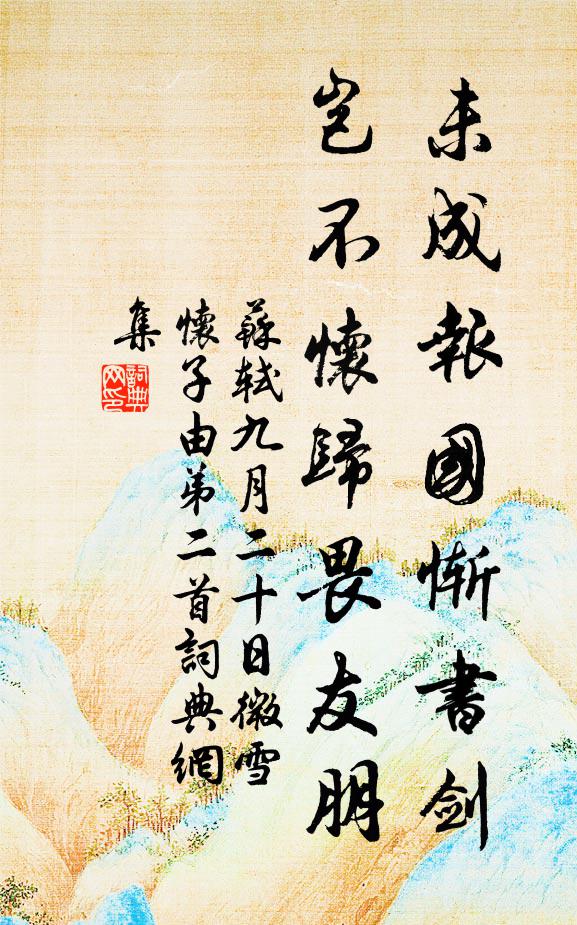 未成報國慚書劍
豈不懷歸畏友朋
蘇軾九月二十日微雪
懷子由弟二首詞典網
集
詞典
网印